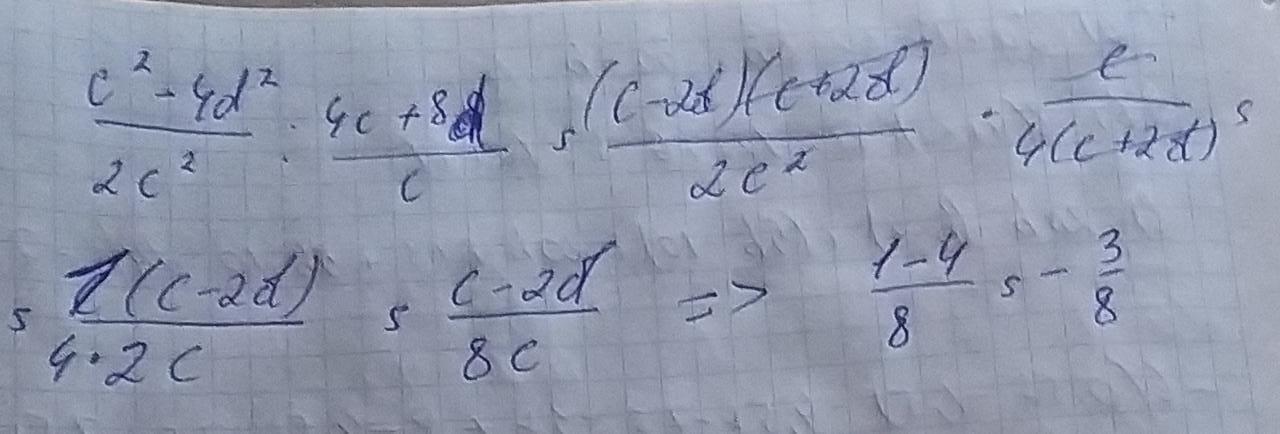 (c² - 4d²)/(2c²) : (4c + 8d)/c = ((c - 2d)(c + 2d))/(2c²) · c/(4(c + 2d)) =
= (1(c - 2d))/(4 · 2c) = (c - 2d)/(8c) => (1 - 4)/8 = - 3/8